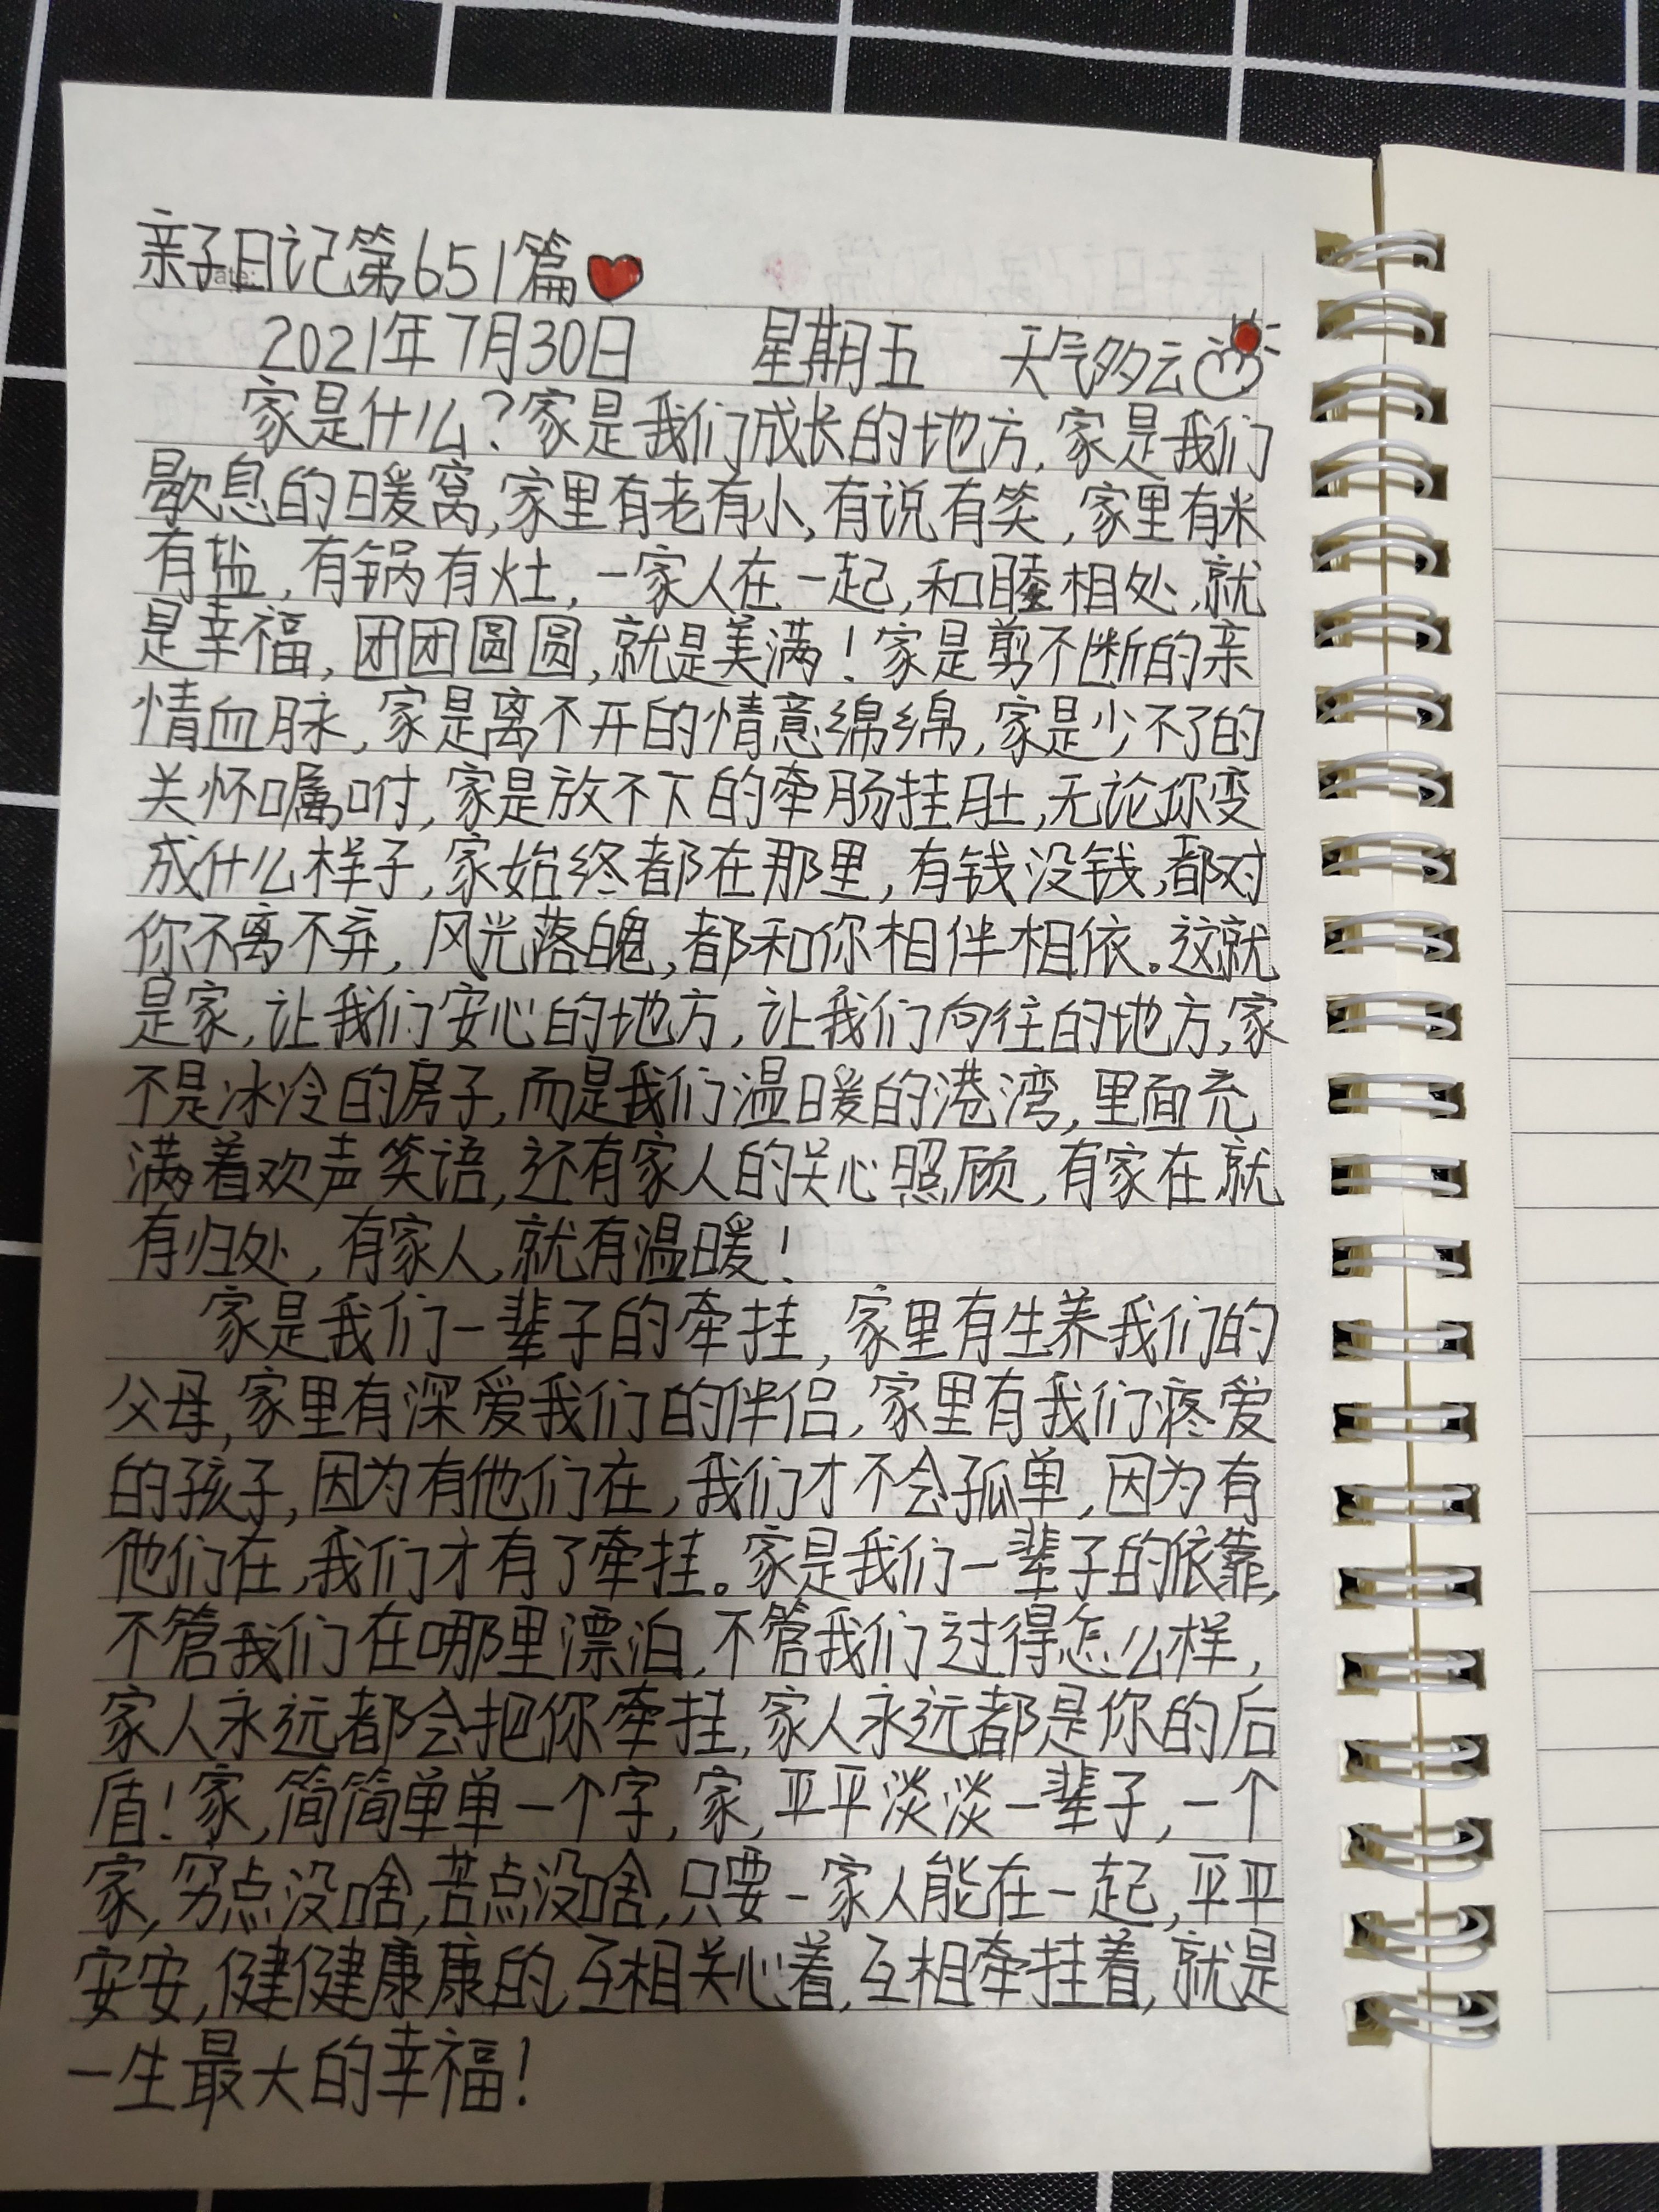 亲子日记第651篇
2021年7月30日 星期五 天气多云
家是什么？家是我们成长的地方，家是我们
歇息的暖窝，家里有老有小，有说有笑，家里有米
有盐，有锅有灶，一家人在一起，和睦相处，就
是幸福，团团圆圆，就是美满！家是剪不断的亲
情血脉，家是离不开的情意绵绵，家是少不了的
关怀嘱咐，家是放不下的牵肠挂肚，无论你变
成什么样子，家始终都在那里，有钱没钱，都对
你不离不弃，风光落魄，都和你相伴相依。这就
是家，让我们安心的地方，让我们向往的地方，家
不是冰冷的房子，而是我们温暖的港湾，里面充
满着欢声笑语，还有家人的关心照顾，有家在就
有归处，有家人，就有温暖！
家是我们一辈子的牵挂，家里有生养我们的
父母，家里有深爱我们的伴侣，家里有我们疼爱
的孩子，因为有他们在，我们才不会孤单，因为有
他们在，我们才有了牵挂。家是我们一辈子的依靠，
不管我们在哪里漂泊，不管我们过得怎么样，
家人永远都会把你牵挂，家人永远都是你的后
盾！家，简简单单一个字，家，平平淡淡一辈子，一个
家，穷点没啥，苦点没啥，只要一家人能在一起，平平
安安，健健康康的，互相关心着，互相牵挂着，就是
一生最大的幸福！